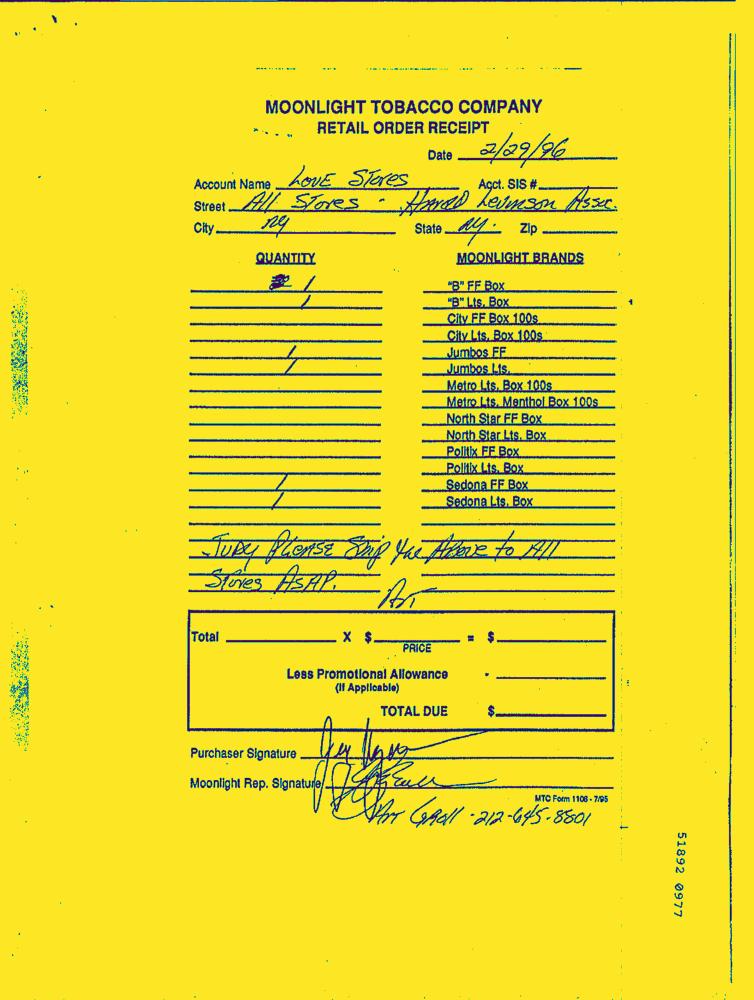 MOONLIGHT TOBACCO COMPANY
RETAIL ORDER RECEIPT
Date 2/29/96
Account Name LOVE STORES Acct. SIS #
Street All STORES - HAROLD Levinson Assoc.
City NY State NY. Zip
QUANTITY MOONLIGHT BRANDS
1 "B" FF Box
1 "B" Lts. Box
City FF Box 100s
City Lts. Box 100s
1 Jumbos FF
1 Jumbos Lts.
Metro Lts. Box 100s
Metro Lts. Menthol Box 100s
North Star FF Box
North Star Lts. Box
Politix FF Box
Politix Lts. Box
1 Sedona FF Box
1 Sedona Lts. Box
JUDY PLEASE Ship The Above to All
Stores ASAP.
Art
Total X $ = $
PRICE
Less Promotional Allowance -
(If Applicable)
TOTAL DUE $
Purchaser Signature
Moonlight Rep. Signature
MTC Form 1108 - 7/95
Art Groll - 212-645-8801
51892 0977